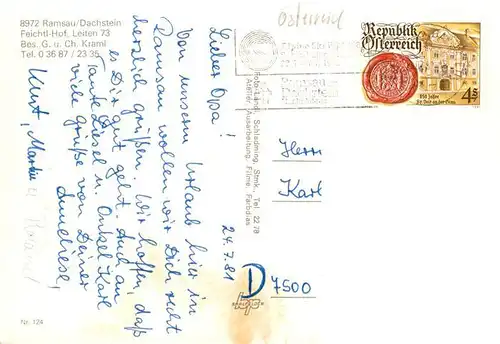 8972 Ramsau/Dachstein
Feichtl-Hof, Leiten 73
Bes. G. u. Ch. Kraml
Tel. 0 36 87 / 23 35
Österreich
Republik
Österreich
4 S
Lieber Opa!
Von unserem Urlaub hier in
Ramsau wollen wir Dich recht
herzlich grüßen. Wir hoffen, daß
es Dir gut geht. Auch an
Tante Liesel u. Onkel Karl
viele Grüße von Deiner
Anneliese,
Kurt, Martin u.
24.7.81
Foto-Landl, Schladming, Stmk., Tel. 22 78
Atelier, Ausarbeitung, Filme, Farbdias
Herrn
Karl
D 7500
Nr. 124